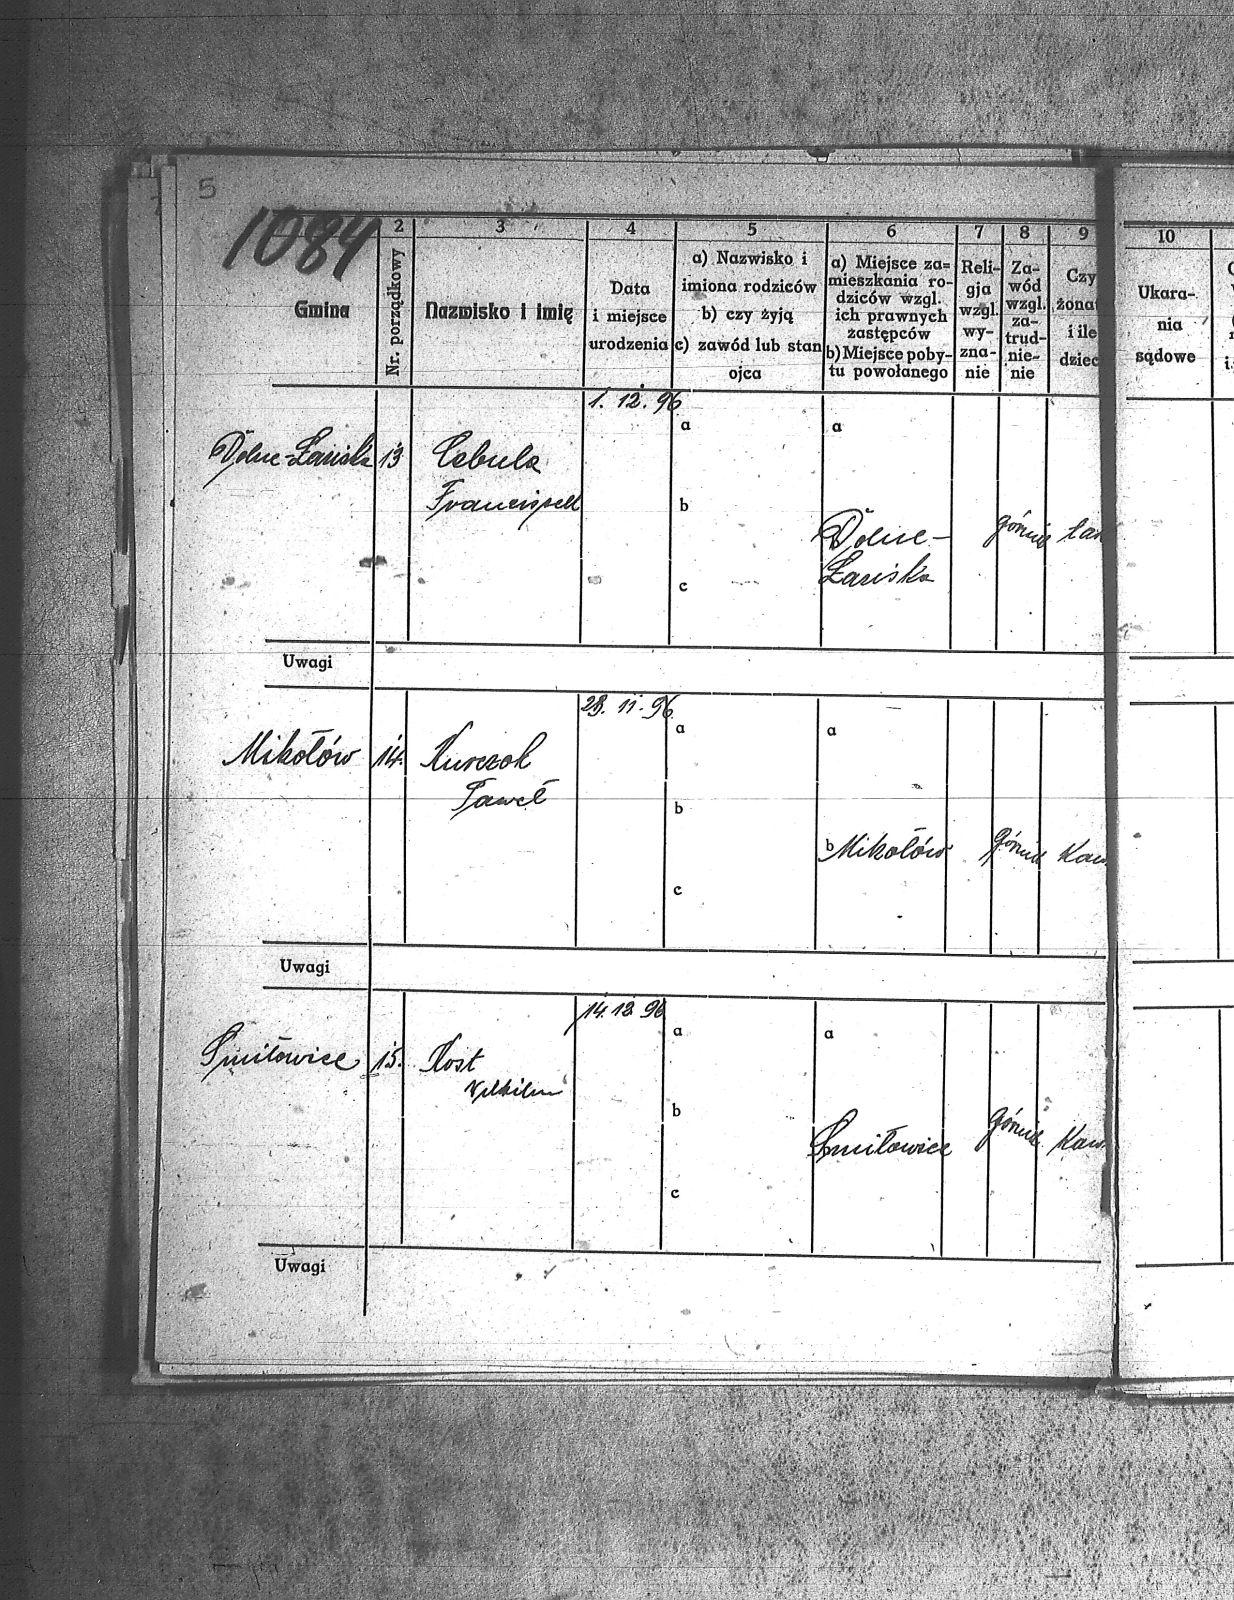 5
1084
2 3 4 5 6 7 8 9 10
Gmina
Nr. porządkowy
Nazwisko i imię
Data
i miejsce
urodzenia
a) Nazwisko i
imiona rodziców
b) czy żyją
c) zawód lub stan
ojca
a) Miejsce za=
mieszkania ro-
dziców wzgl.
ich prawnych
zastępców
b) Miejsce poby-
tu powołanego
Reli-
gja
wzgl.
wy-
zna-
nie
Za-
wód
wzgl.
za-
trud-
nie-
nie
Czy
żonat
i ile
dziec
Ukara-
nia
sądowe
1. 12. 96
Dolne-Łaziska 13 Cebula
Franciszek
a
b
c
a
Dolne-
Łaziska
górnik
Uwagi
23. 11. 96
Mikołów 14. Kurczok
Paweł
a
b
c
a
b Mikołów górnik Kaw.
Uwagi
14. 12. 96
Śmiłowice 15. Kost
Wilhelm
a
b
c
a
Śmiłowice górnik Kaw.
Uwagi